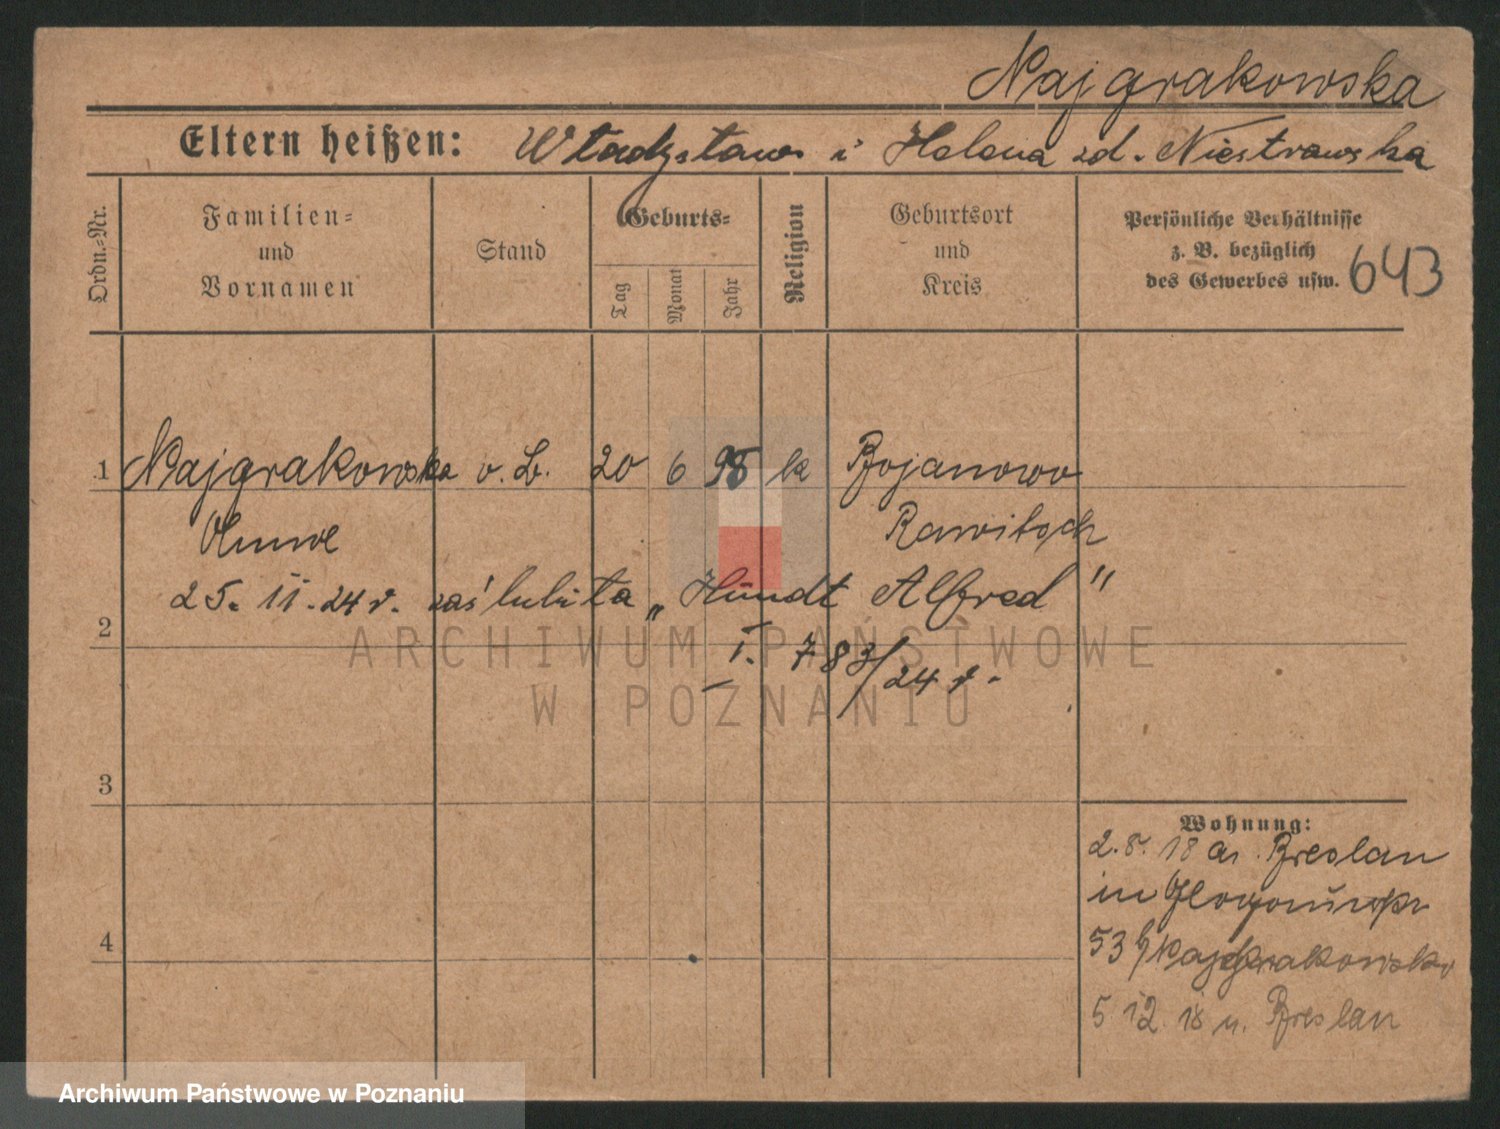 Najgrakowska
Eltern heißen: Władysław i Helena zd. Niestrawska
Ordn.-Nr.
Familien- und Vornamen
Stand
Geburts-
Tag
Monat
Jahr
Religion
Geburtsort und Kreis
Persönliche Verhältnisse z. B. bezüglich des Gewerbes usw.
643
1 Najgrakowska o. B. 20 6 98 k Bojanowo
Rawitsch
25. 11. 24 r. zaślubiła „Hundt Alfred”
2
I. 783/24 r.
3
4
Wohnung:
2. 8. 18 a. Breslau
in
53 b/ Najgrakowska
5 12. 18 n. Breslau
ARCHIWUM PAŃSTWOWE
W POZNANIU
Archiwum Państwowe w Poznaniu